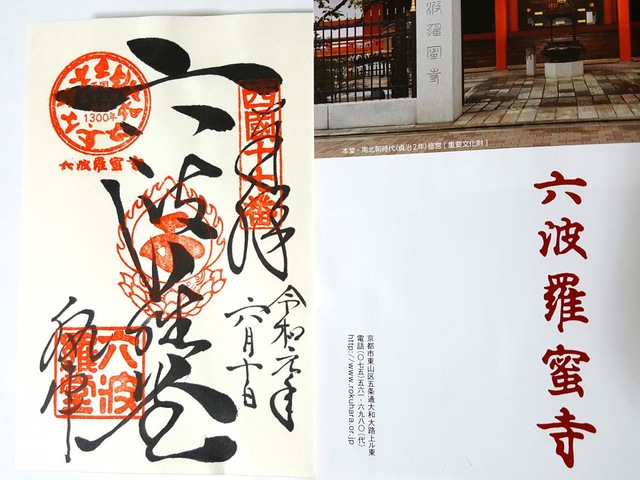 奉拝
令和元年
六月十日
六波羅堂
西国十七番
1300年
六波羅蜜寺
六波
羅堂
六波羅蜜寺
本堂・南北朝時代(貞治2年)修営[重要文化財]
六波羅蜜寺
京都市東山区五条通大和大路上ル東
電話(〇七五)五六一-六九八〇(代)
http://www.rokuhara.or.jp